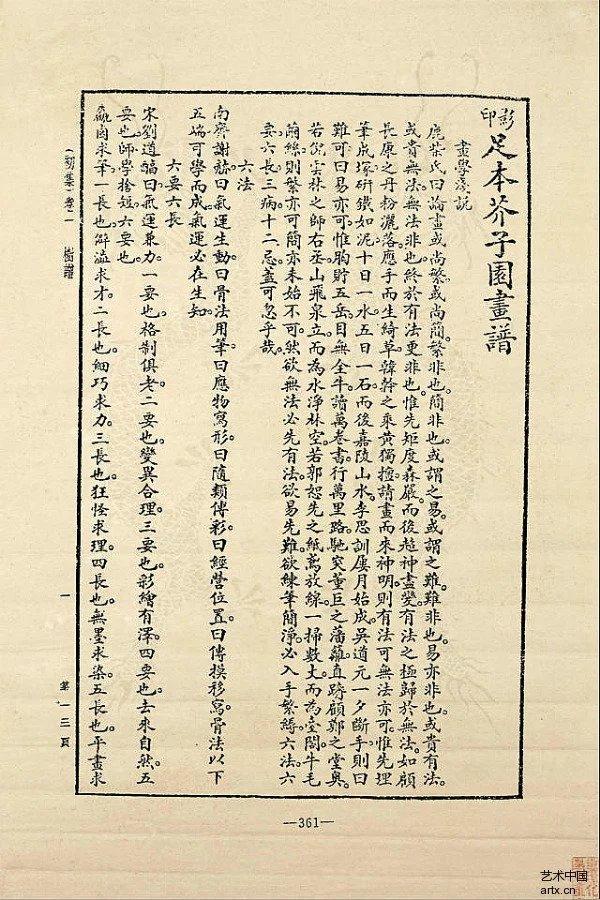 彭印
足本芥子園畫譜
畫學淺説
鹿柴氏曰論畫或尚繁或尚簡。繁非也。簡非也。或謂之易。或謂之難。難非也。易亦非也。或貴有法。
或貴無法。無法非也。終於有法更非也。惟先矩度森嚴而後超神盡變。有法之極歸於無法。如顧
長康之丹粉灑落。應手而生綺草。韓幹之乘黄獨擅。請畫而來神明。則有法可無法亦可。惟先埋
筆成塚。研鐵如泥。十日一水。五日一石。而後嘉陵山水。李思訓屢月始成。吳道元一夕斷手。則曰
難可。曰易亦可。惟胸貯五岳。目無全牛。讀萬卷書。行萬里路。馳突董巨之藩籬。直躋顧鄭之堂奥。
若倪雲林之師右丞。山飛泉立。而為水淨林空。若郭恕先之紙鳶放線。一掃數丈。而為臺閣。牛毛
繭絲。則繁亦可。簡亦未始不可。然欲無法必先有法。欲易先難。欲練筆簡淨。必入手繁縟。六法六
要六長三病十二忌。蓋可忽乎哉。
六法
南齊謝赫曰氣運生動。曰骨法用筆。曰應物寫形。曰隨類傅彩。曰經營位置。曰傳摸移寫。骨法以下
五端可學而成。氣運必在生知。
六要六長
宋劉道醇曰氣運兼力。一要也。格制俱老。二要也。變異合理。三要也。彩繪有澤。四要也。去來自然。五
要也。師學捨短。六要也。
麤鹵求筆。一長也。僻澁求才。二長也。細巧求力。三長也。狂怪求理。四長也。無墨求染。五長也。平畫求
(初集)卷一 樹譜 一 第一三頁
—361—
艺术中国
artx.cn